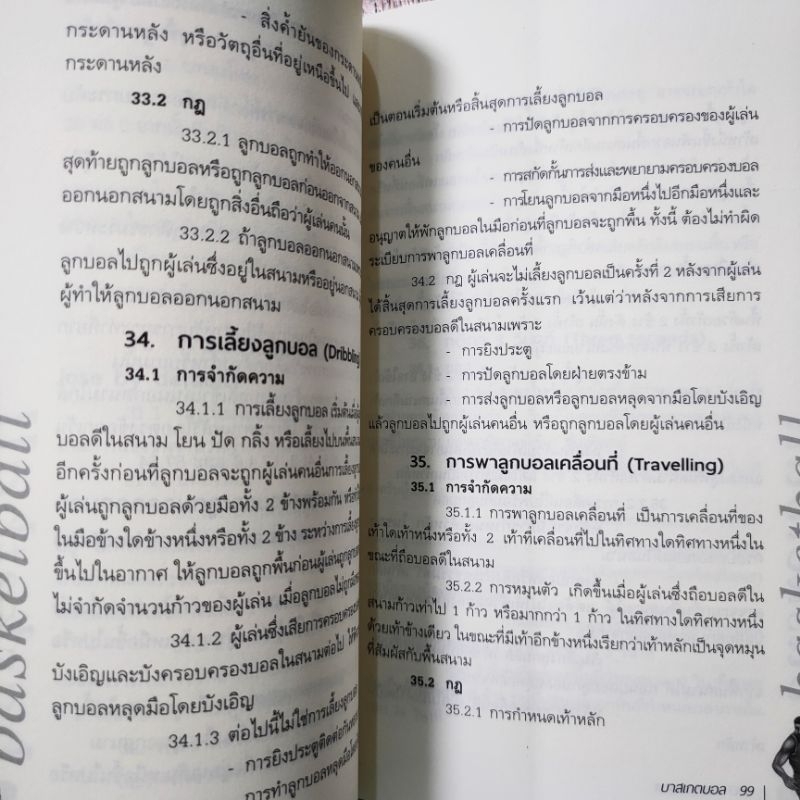 - สิ่งค้ำยันของกระดาน
กระดานหลัง หรือวัตถุอื่นที่อยู่เหนือขึ้นไป
กระดานหลัง
33.2 กฎ
33.2.1 ลูกบอลถูกทำให้ออกนอก
สุดท้ายถูกลูกบอลหรือถูกลูกบอลก่อนออกจาก
ออกนอกสนามโดยถูกสิ่งอื่นถือว่าผู้เล่นคนนั้น
33.2.2 ถ้าลูกบอลออกนอกสนาม
ลูกบอลไปถูกผู้เล่นซึ่งอยู่ในสนามหรืออยู่นอก
ผู้ทำให้ลูกบอลออกนอกสนาม
34. การเลี้ยงลูกบอล (Dribbling
34.1 การจำกัดความ
34.1.1 การเลี้ยงลูกบอล เริ่มต้น
บอลดีในสนาม โยน ปัด กลิ้ง หรือเลี้ยงไปบนพื้น
อีกครั้งก่อนที่ลูกบอลจะถูกผู้เล่นคนอื่นการเลี้ยง
ผู้เล่นถูกลูกบอลด้วยมือทั้ง 2 ข้างพร้อมกัน
ในมือข้างใดข้างหนึ่งหรือทั้ง 2 ข้าง ระหว่างการเลี้ยง
ขึ้นไปในอากาศ ให้ลูกบอลถูกพื้นก่อนผู้เล่นถูก
ไม่จำกัดจำนวนก้าวของผู้เล่น เมื่อลูกบอลไม่ถูก
34.1.2 ผู้เล่นซึ่งเสียการครอบครอง
บังเอิญและบังครอบครองบอลในสนามต่อไป
ลูกบอลหลุดมือโดยบังเอิญ
34.1.3 ต่อไปนี้ไม่ใช่การเลี้ยง
- การยิงประตูติดต่อกัน
- การทำลูกบอลหลุดมือ
basketball
เป็นตอนเริ่มต้นหรือสิ้นสุดการเลี้ยงลูกบอล
- การปัดลูกบอลจากการครอบครองของผู้เล่น
ของคนอื่น
- การสกัดกั้นการส่งและพยายามครอบครองบอล
- การโยนลูกบอลจากมือหนึ่งไปอีกมือหนึ่งและ
อนุญาตให้พักลูกบอลในมือก่อนที่ลูกบอลจะถูกพื้น ทั้งนี้ ต้องไม่ทำผิด
ระเบียบการพาลูกบอลเคลื่อนที่
34.2 กฎ ผู้เล่นจะไม่เลี้ยงลูกบอลเป็นครั้งที่ 2 หลังจากผู้เล่น
ได้สิ้นสุดการเลี้ยงลูกบอลครั้งแรก เว้นแต่ว่าหลังจากการเสียการ
ครอบครองบอลดีในสนามเพราะ
- การยิงประตู
- การปัดลูกบอลโดยฝ่ายตรงข้าม
- การส่งลูกบอลหรือลูกบอลหลุดจากมือโดยบังเอิญ
แล้วลูกบอลไปถูกผู้เล่นคนอื่น หรือถูกลูกบอลโดยผู้เล่นคนอื่น
35. การพาลูกบอลเคลื่อนที่ (Travelling)
35.1 การจำกัดความ
35.1.1 การพาลูกบอลเคลื่อนที่ เป็นการเคลื่อนที่ของ
เท้าใดเท้าหนึ่งหรือทั้ง 2 เท้าที่เคลื่อนที่ไปในทิศทางใดทิศทางหนึ่งใน
ขณะที่ถือบอลดีในสนาม
35.2.2 การหมุนตัว เกิดขึ้นเมื่อผู้เล่นซึ่งถือบอลดีใน
สนามก้าวเท้าไป 1 ก้าว หรือมากกว่า 1 ก้าว ในทิศทางใดทิศทางหนึ่ง
ด้วยเท้าข้างเดียว ในขณะที่มีเท้าอีกข้างหนึ่งเรียกว่าเท้าหลักเป็นจุดหมุน
ที่สัมผัสกับพื้นสนาม
35.2 กฎ
35.2.1 การกำหนดเท้าหลัก
บาสเกตบอล 99
basketball